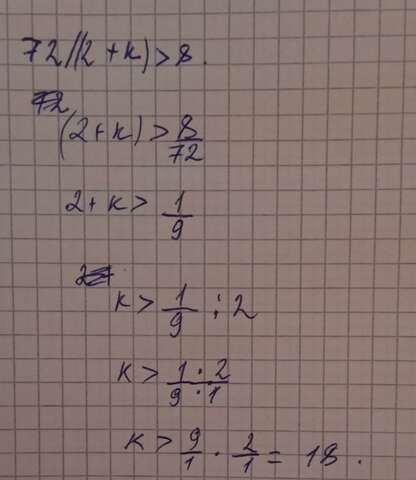 72/(2+k)>8.
(2+k)>8/72
2+k>1/9
k>1/9:2
k>1·2/9·1
k>9/1·2/1=18.